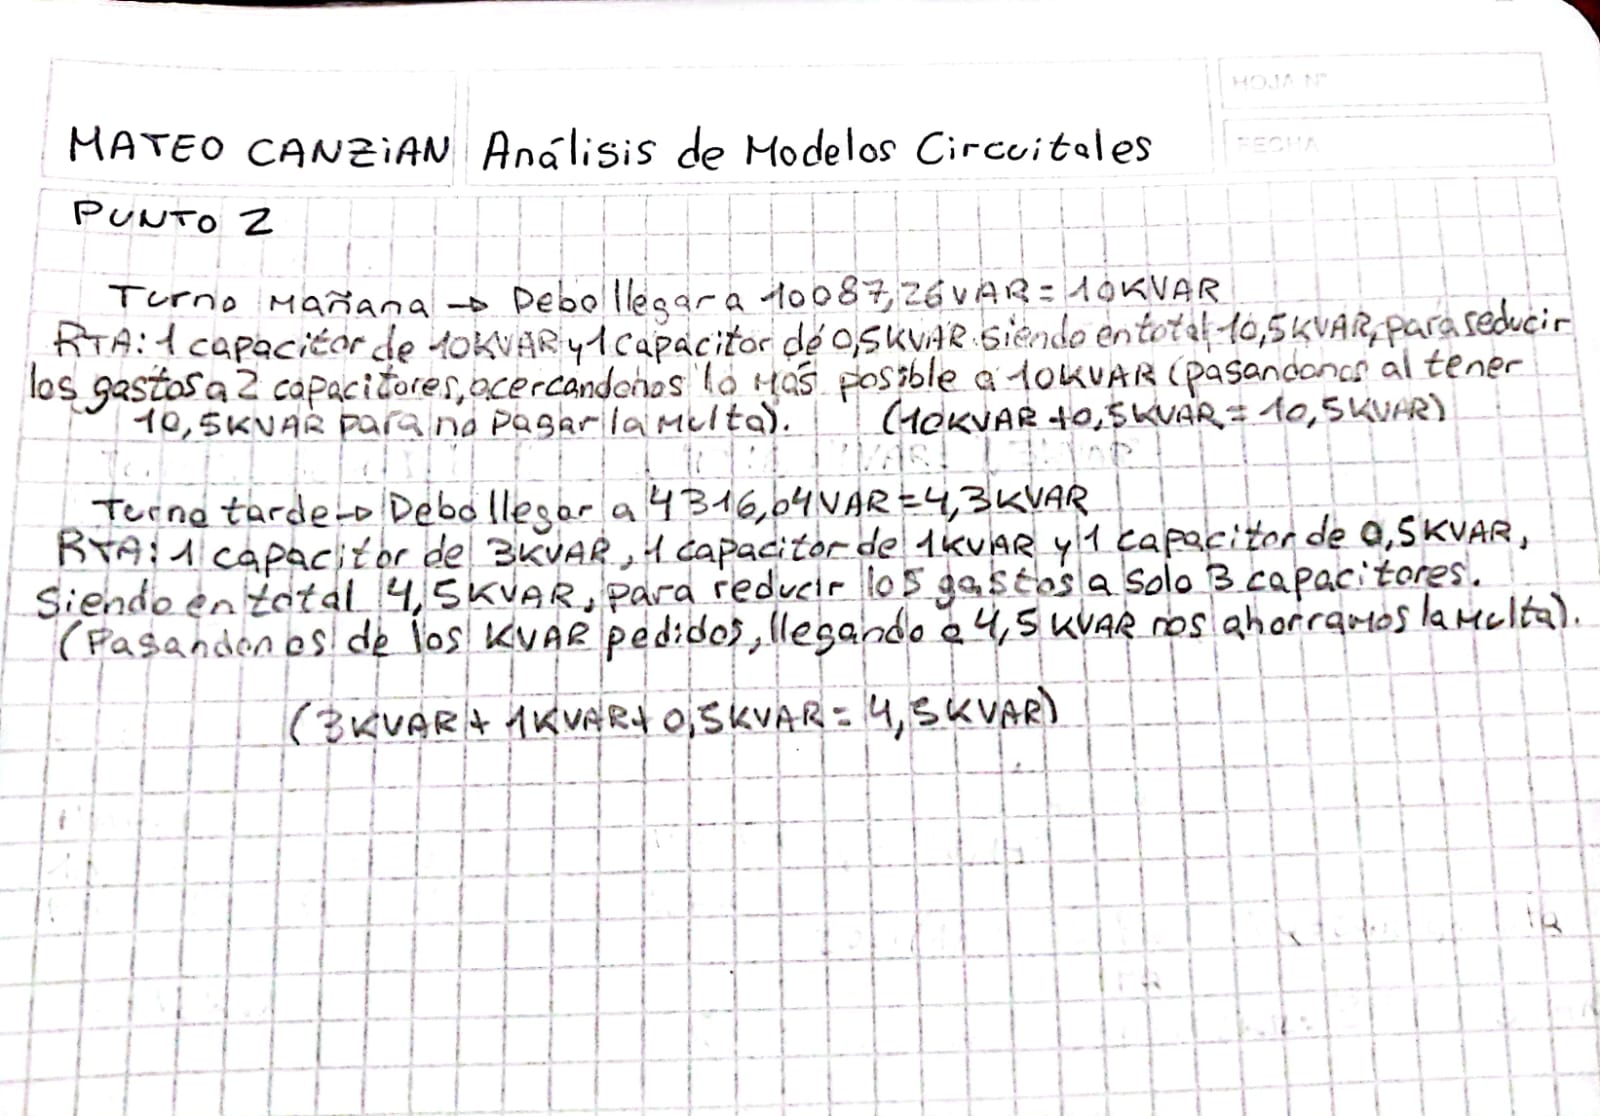 HOJA N°
MATEO CANZiAN Análisis de Modelos Circuitales
FECHA
PUNTO 2
Turno Mañana → Debo llegar a 10087,26VAR = 10KVAR
RTA: 1 capacitor de 10KVAR y 1 capacitor de 0,5KVAR siendo en total 10,5KVAR, para reducir
los gastos a 2 capacitores, acercandonos lo Más posible a 10KVAR (pasandonos al tener
10,5KVAR para no Pagar la Multa). (10KVAR + 0,5KVAR = 10,5KVAR)
Turno tarde → Debo llegar a 4316,04VAR = 4,3KVAR
RTA: 1 capacitor de 3KVAR, 1 capacitor de 1KVAR y 1 capacitor de 0,5KVAR,
Siendo en total 4,5KVAR, para reducir los gastos a Solo 3 capacitores.
(Pasandonos de los KVAR pedidos, llegando a 4,5 KVAR nos ahorramos la Multa).
(3KVAR + 1KVAR + 0,5KVAR = 4,5KVAR)